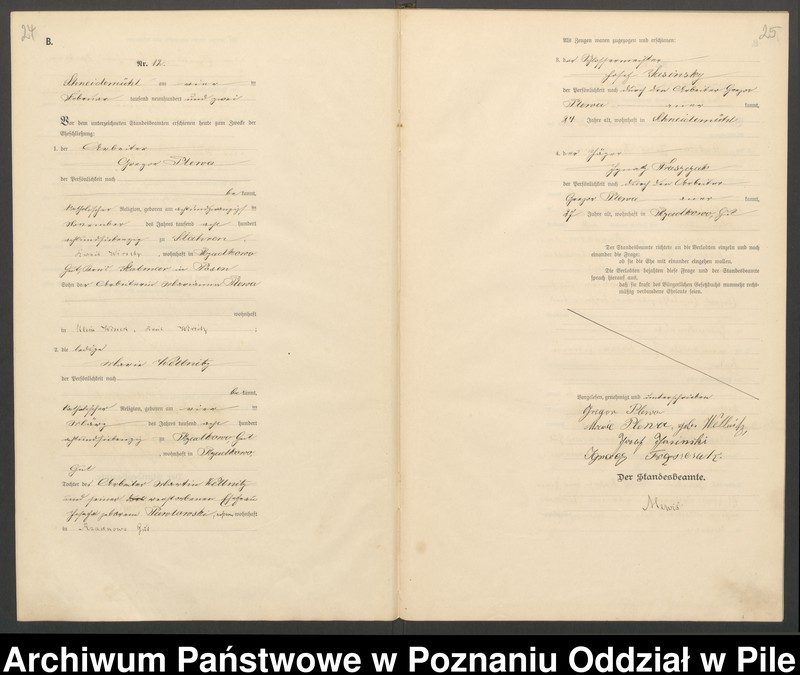 24
B.
Nr. 12.
Schneidemühl am vier ten
Februar tausend neunhundert und zwei
Vor dem unterzeichneten Standesbeamten erschienen heute zum Zwecke der
Eheschließung:
1. der Arbeiter
Gregor Plewa
der Persönlichkeit nach
be kannt,
katholischer Religion, geboren am achtundzwanzigsten
November des Jahres tausend acht hundert
achtundsiebenzig zu
, wohnhaft in Rzadkowo
Gut, Kreis Kolmar in Posen
Sohn der Arbeiterin Marianna Plewa
wohnhaft
in
2. die ledige
Marie Wellnitz
der Persönlichkeit nach
be kannt,
katholischer Religion, geboren am vier ten
März des Jahres tausend acht hundert
achtundsiebenzig zu Rzadkowo, Gut
, wohnhaft in Rzadkowo,
Gut
Tochter des Arbeiter Martin Wellnitz
und seiner verstorbenen Ehefrau
Josefa geborene Pawlowski, wohnhaft
in Rzadkowo Gut
25
Als Zeugen waren zugezogen und erschienen:
3. der Schlossermeister
Josef Jasinsky
der Persönlichkeit nach durch den Arbeiter Gregor
Plewa aner kannt,
Jahre alt, wohnhaft in Schneidemühl
4. der Jäger
Ignatz
der Persönlichkeit nach durch den Arbeiter
Gregor Plewa aner kannt,
47 Jahre alt, wohnhaft in Rzadkowo, Gut
Der Standesbeamte richtete an die Verlobten einzeln und nach
einander die Frage:
ob sie die Ehe mit einander eingehen wollen.
Die Verlobten bejahten diese Frage und der Standesbeamte
sprach hierauf aus,
daß sie kraft des Bürgerlichen Gesetzbuchs nunmehr recht-
mäßig verbundene Eheleute seien.
Vorgelesen, genehmigt und unterschrieben
Gregor Plewa
Marie Plewa, geb. Wellnitz,
Josef Jasinski
Ignacy
Der Standesbeamte.
Archiwum Państwowe w Poznaniu Oddział w Pile